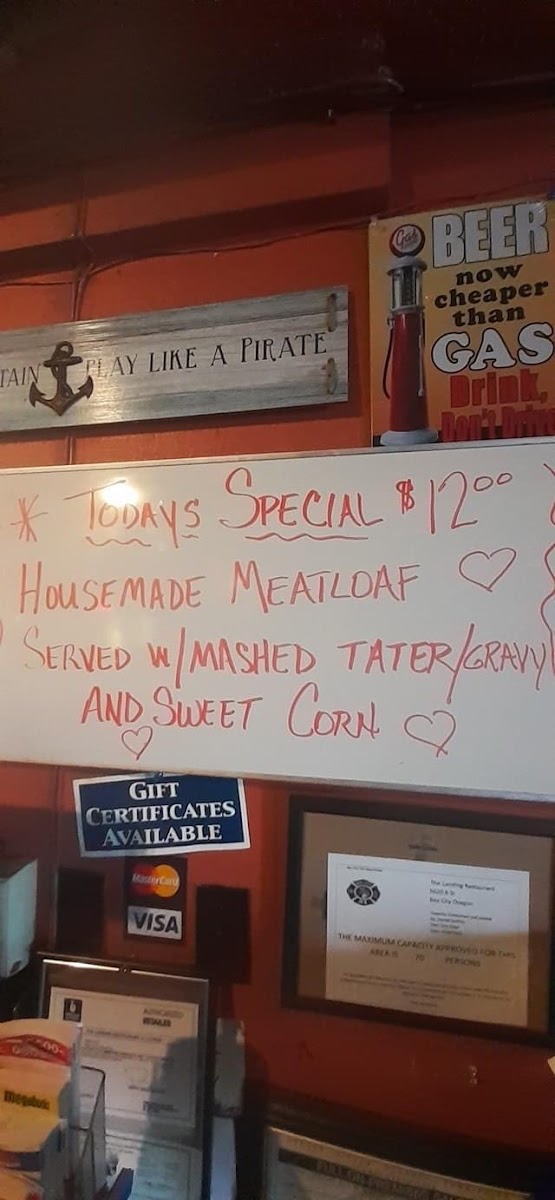 Gas
BEER
now
cheaper
than
GAS
Drink,
Don't Drive
TAIN PLAY LIKE A PIRATE
* TODAYS SPECIAL $12⁰⁰
HOUSEMADE MEATLOAF ♡
SERVED W/MASHED TATER/GRAVY
AND SWEET CORN ♡
♡
GIFT
CERTIFICATES
AVAILABLE
MasterCard
VISA
The Landing Restaurant
Bay City Oregon
THE MAXIMUM CAPACITY APPROVED FOR THIS
AREA IS 70 PERSONS
AUTHORIZED
RETAILER
Megabucks